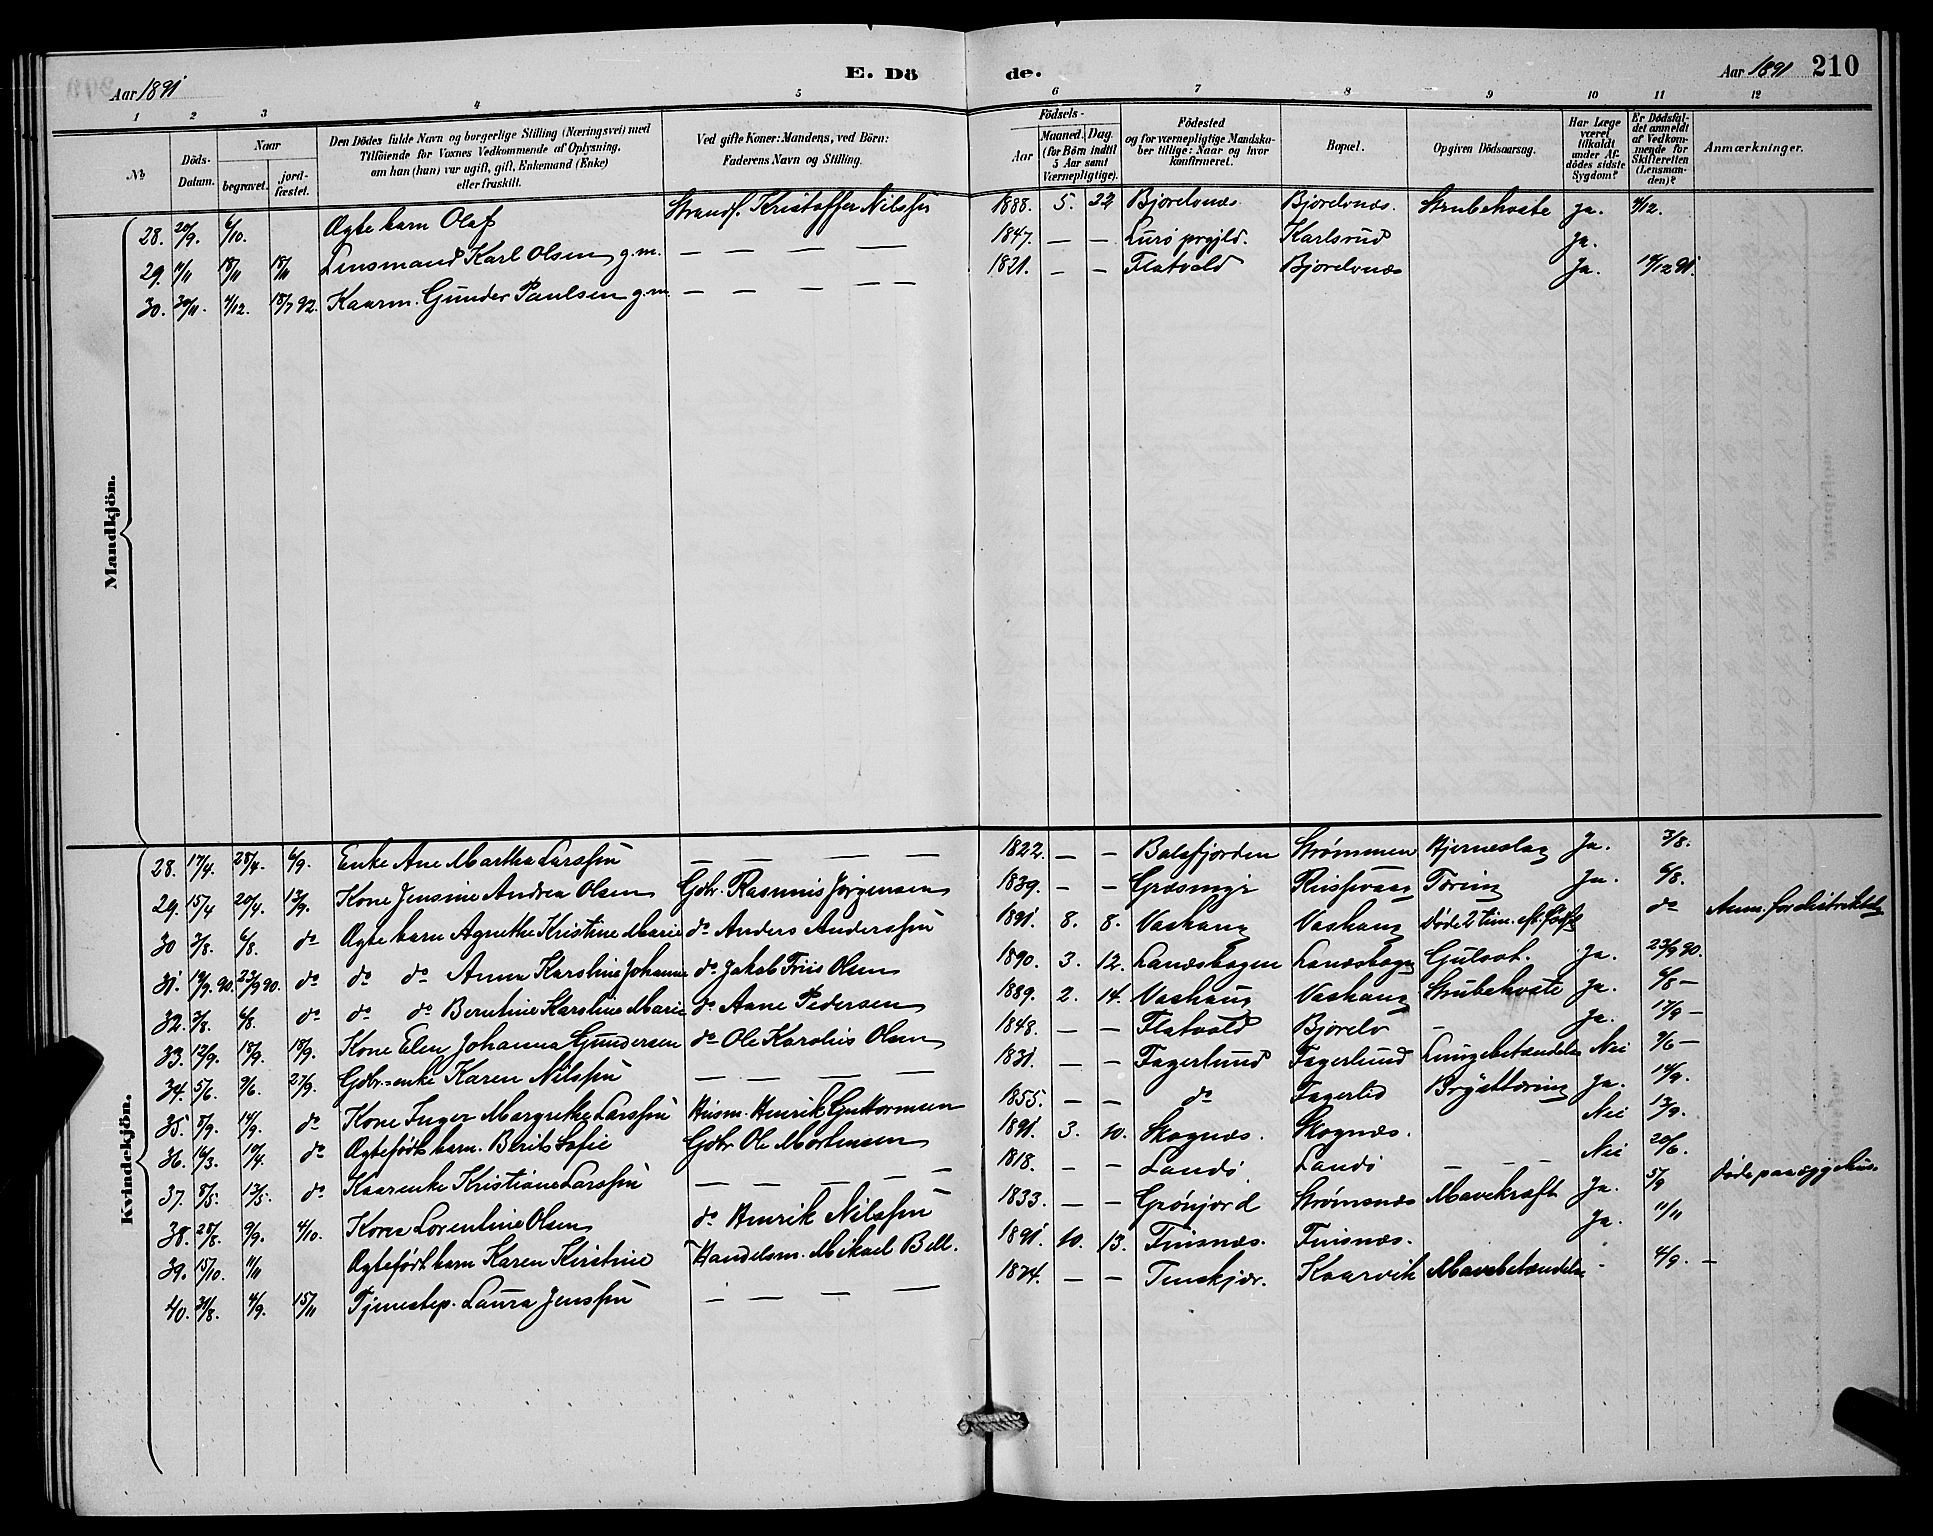 Aar 1891 E. Dö de. Aar 1891 210
1 2 3 4 5 6 7 8 9 10 11 12
No Döds-Datum. Naar begravet. jord-fæstet. Den Dödes fulde Navn og borgerlige Stilling (Næringsvei) med Tilföiende for Voxnes Vedkommende af Oplysning, om han (hun) var ugift, gift, Enkemand (Enke) eller fraskilt. Ved gifte Koner: Mandens, ved Börn: Faderens Navn og Stilling. Födsels- Aar Maaned. Dag. (for Börn indtil 5 Aar samt Værnepligtige). Födested og for værnepligtige Mandskaber tillige: Naar og hvor konfirmeret. Bopæl. Opgiven Dödsaarsag. Har Læge været tilkaldt under Afdödes sidste Sygdom? Er Dödsfaldet anmeldt af Vedkommende for Skifteretten (Lensmanden)? Anmærkninger.
Mandkjön.
28. 20/9. 6/10. Ægte barn Olaf Strands. Kristoffer Nilssen 1888. 5. 22 Bjorelvnæs. Bjorelvnæs. Strubehoste Ja. 4/12.
29. 11/11 18/11 18/11 Lensmand Karl Olsen g.m. — — — — 1847. — — Lurø prgjld. Karlsrud Ja.
30. 30/11. 4/12. 18/7 92. Kaarm. Gunder Paulsen g.m. — — — — 1821. — — Flatvold Bjorelvnæs Ja. 14/12 91.
Kvindekjön.
28. 17/4. 28/4. 6/9. Enke Ane Martha Larssen — — — — 1822. — — Balsfjorden Strømmen Hjerneslag Ja. 3/8.
29. 15/4 20/4. 13/9. Kone Jensine Andrea Olsen Gdbr. Rasmus Jørgensen 1839. — — Græsmyr Tæring Ja. 6/8.
30 3/8. 6/8. do Ægte barn Agnethe Kristine Marie do Anders Anderssen 1891. 8. 8. Vashaug Vashaug Døde 2 tim. eft. Fødsl do Anm. for distriktslg
31. 19/9. 90. 23/9 90. do do do Anna Karoline Johanne do Jakob Friis Olsen 1890. 3. 12. Landsbogen Landsbogen Gulsot. Ja. 23/9 90.
32. 3/8. 6/8. do do do Berntine Karoline Marie do Aane Pedersen 1889. 2. 14. Vashaug Vashaug Strubehoste Ja. 6/8 —
33. 12/9. 18/9. 18/9. Kone Elen Johanna Gundersen do Ole Karolius Olsen 1848. — — Flatvold Bjorelv — Ja. 17/9 —
34. 5/6. 9/6. 27/9. Gdbr. enke Karen Nilssen — — — — 1831. — — Fagerlund Fagerlund Lungebetændelse Nei 9/6 —
35. 8/9. 14/9. do Kone Inger Margrethe Larssen Husm. Henrik Guttormsen 1855. — — do Fagerlid Brysttæring Ja. 14/9.
36. 16/3. 10/4. do Ægtefødt barn. Berit Sofie Gdbr. Ole Mortensen 1891. 3. 10. Skognæs. Skognæs. Nei 13/9.
37. 8/5. 13/5. do Kaarenke Kristiane Larssen — — — — — 1818. — — Landø Landø — — — Nei 20/6.
38. 28/8. 9/9. 4/10. Kone Lorentine Olsen do Henrik Nilssen 1833. — — Grønjord Strømsnæs Mavekræft Ja. 5/9 Døde paa sygehus.
39. 15/10. 11/11 Ægtefødt barn Karen Kirstine Handelsm. Mikael Bell. 1891. 10. 13. Finsnæs. Finsnæs. Ja. 11/11
40. 31/8. 4/9. 15/11 Tjenestep. Laura Jenssen — — — — 1874. — — Tenskjær. Kaarvik Mavebetændelse - 4/9. —